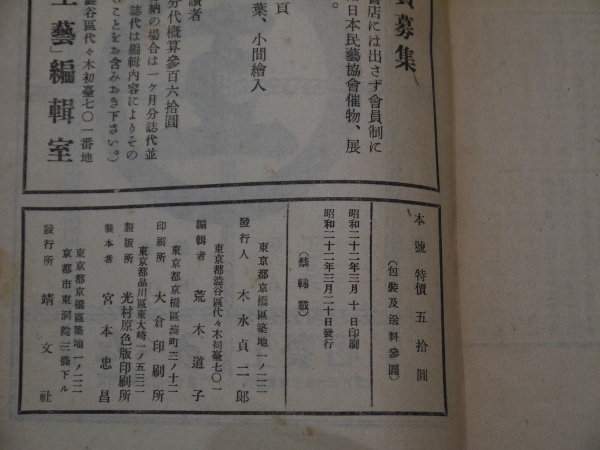 員募集
書店には出さず會員制に
日本民藝協會催物、展
。
頁
葉、小間繪入
讀者
分代概算參百六拾圓
納の場合は一ヶ月分誌代並
誌代は編輯内容によりその
ことをお含みおき下さい。)
工藝」編輯室
澁谷區代々木初臺七〇一番地
本號特價五拾圓
(包裝及送料參圓)
昭和二十二年三月十日印刷
昭和二十二年三月二十日發行
(禁轉載)
東京都京橋區築地一ノ二二
發行人 木水貞二郎
東京都澁谷區代々木初臺七〇一
編輯者 荒木道子
東京都京橋區湊町三ノ十二
印刷所 大倉印刷所
東京都品川區東大崎一ノ五三二
製版所 光村原色版印刷所
製本者 宮本忠昌
東京都京橋區築地一ノ二二
京都市東洞院三條下ル
發行所 靖文社